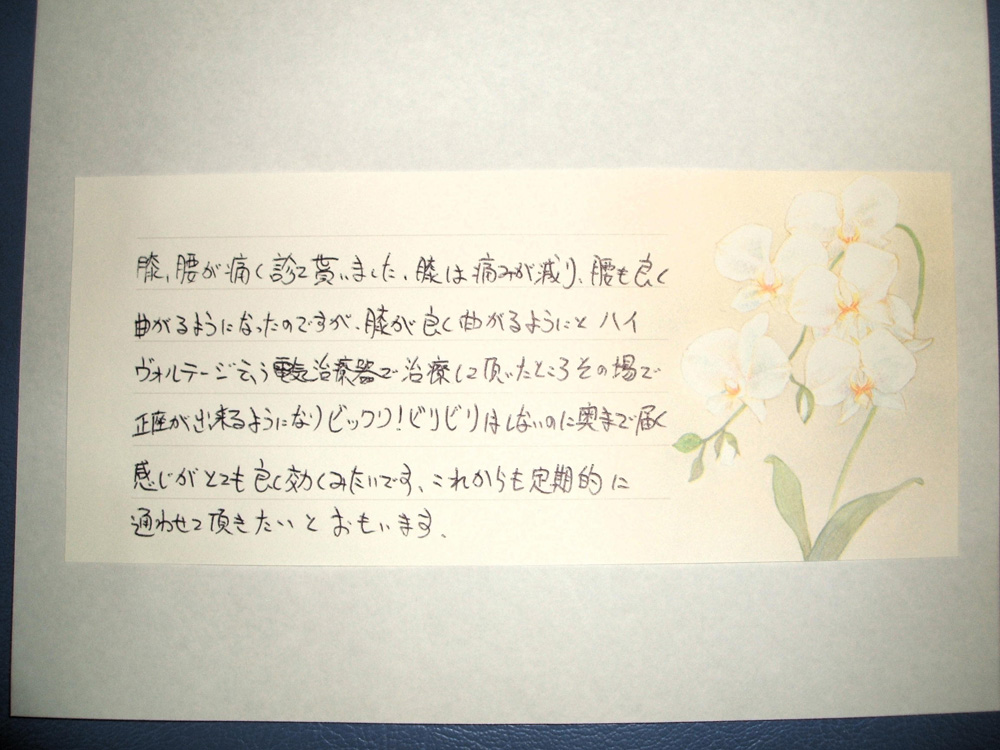 膝、腰が痛く診て貰いました、膝は痛みが減り、腰も良く
曲がるようになったのですが、膝が良く曲がるようにと ハイ
ヴォルテージ云う電気治療器で治療して頂いたところその場で
正座が出来るようになりビックリ!ビリビリはしないのに奥まで届く
感じがとても良く効くみたいです、これからも定期的に
通わせて頂きたいと おもいます、